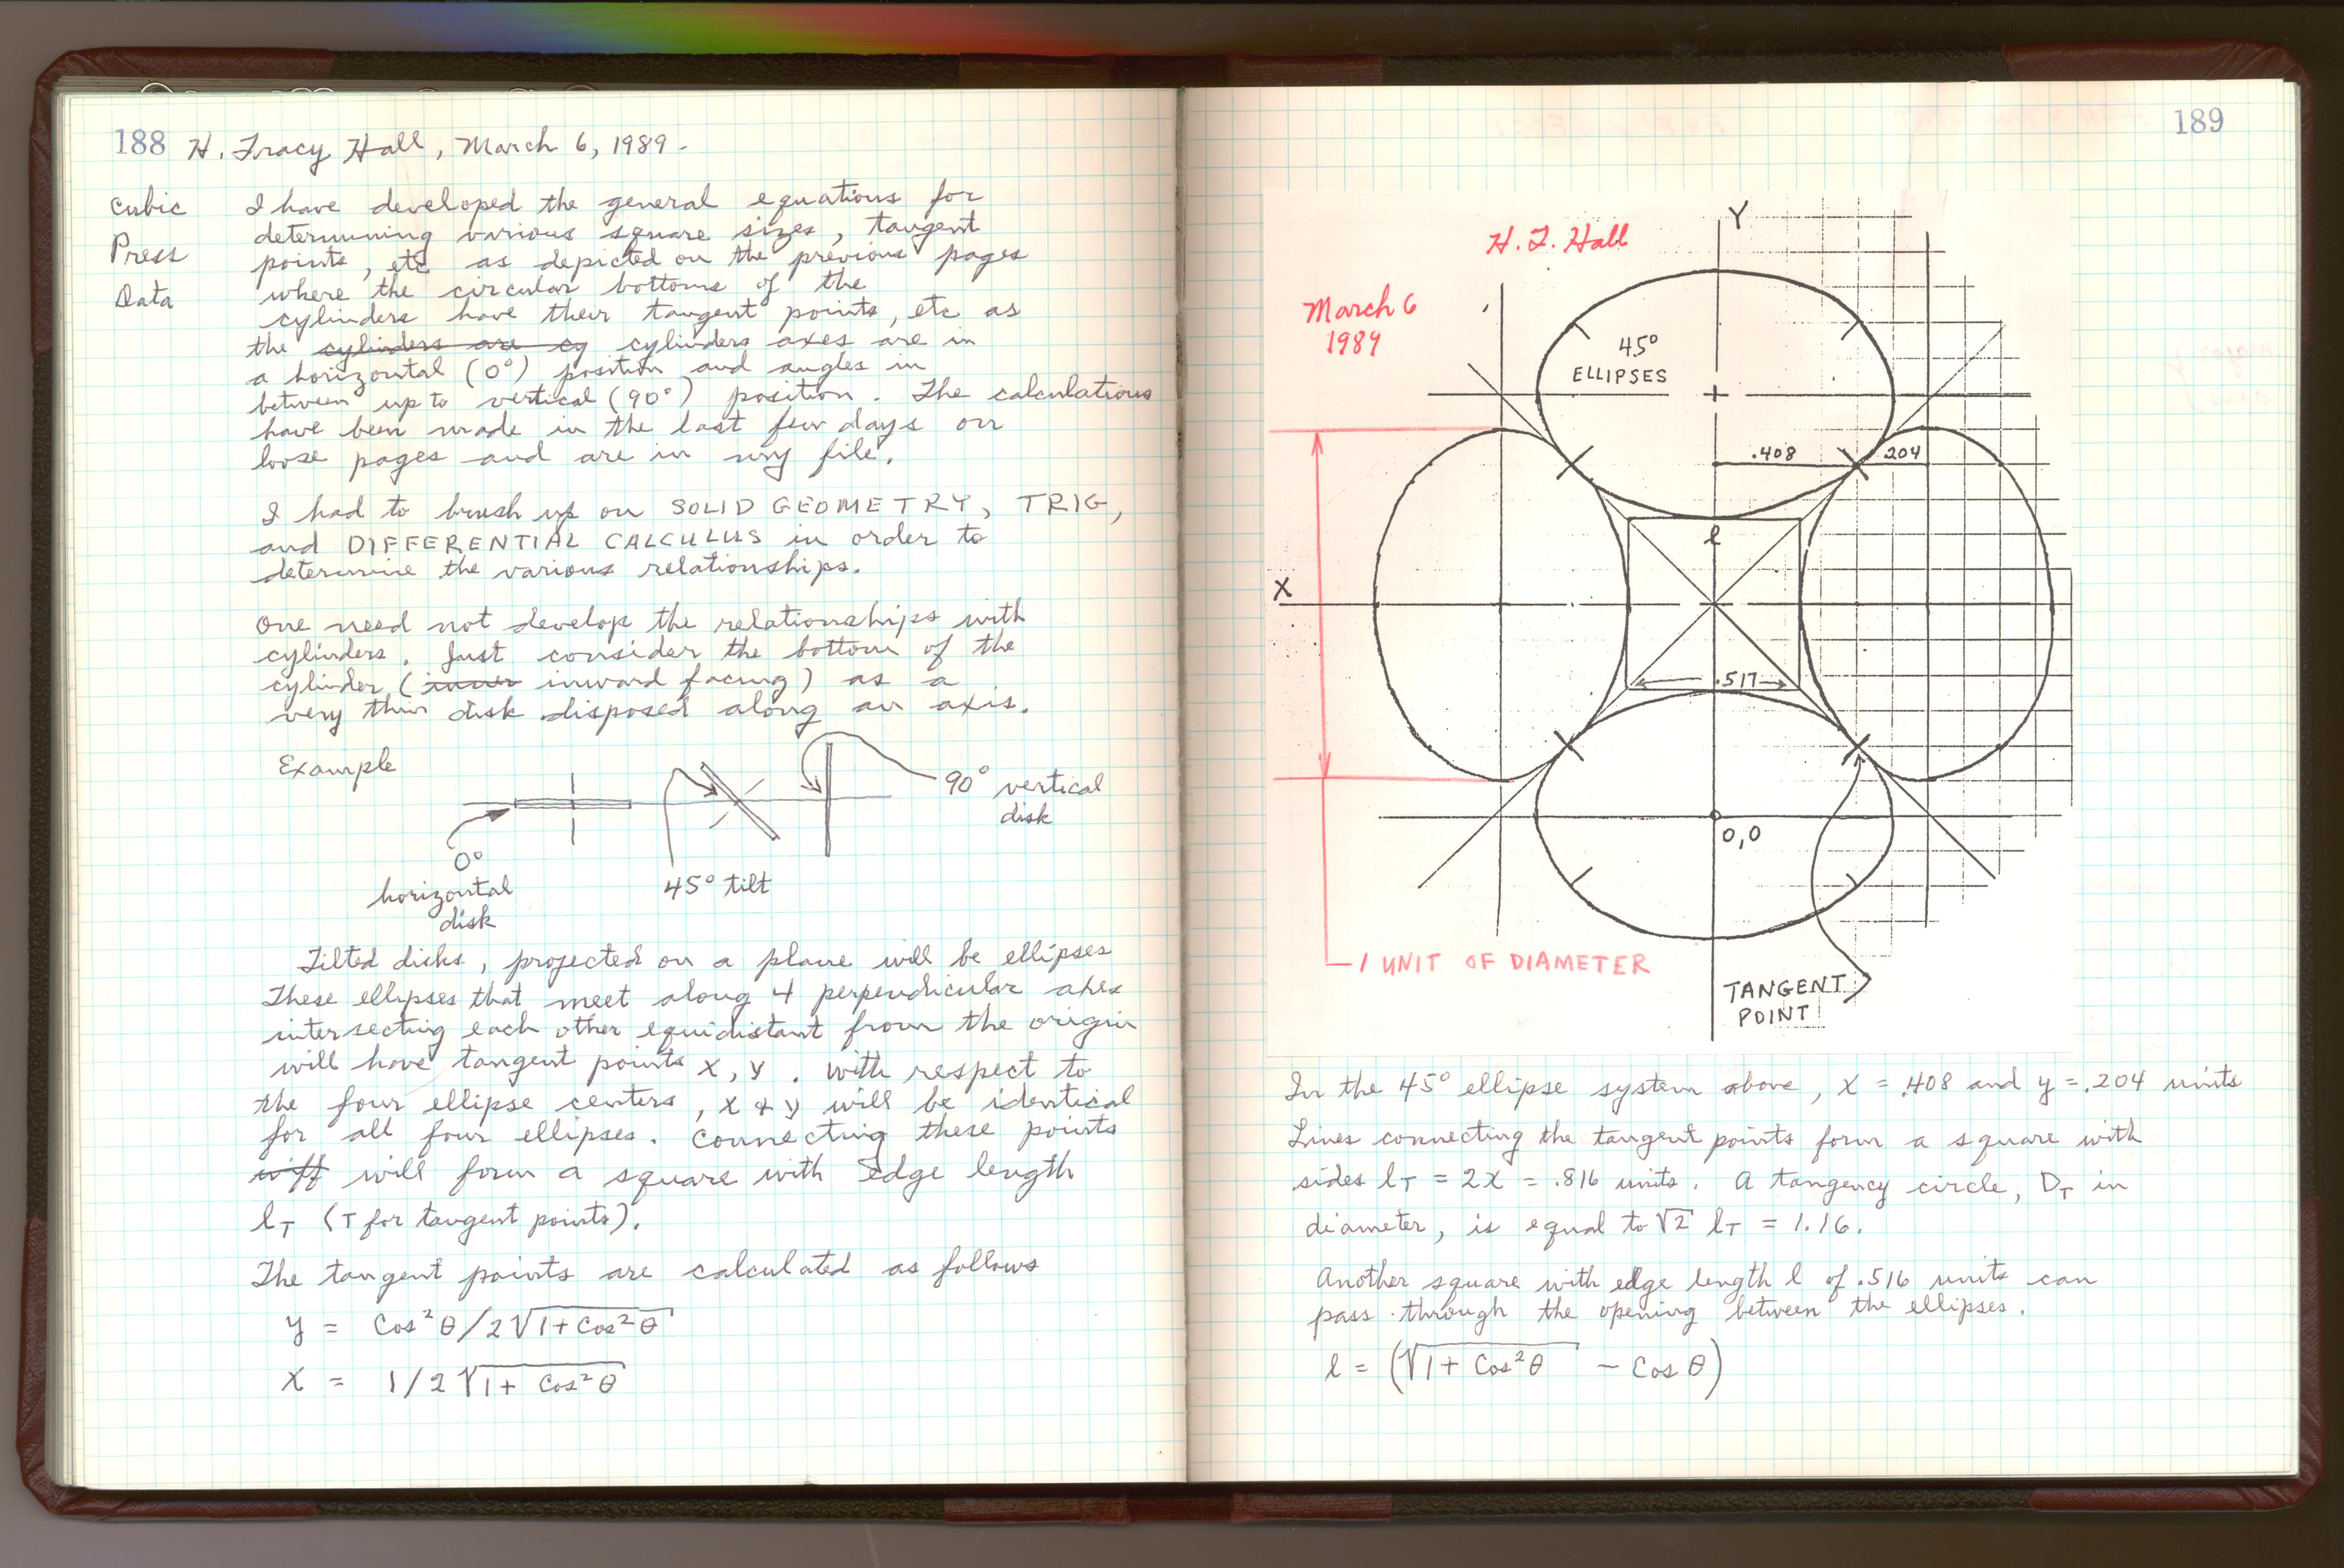 188 H. Tracy Hall, March 6, 1989.
Cubic
Press
Data
I have developed the general equations for
determining various square sizes, tangent
points, etc as depicted on the previous pages
where the circular bottoms of the
cylinders have their tangent points, etc as
the cylinders are cy cylinders axes are in
a horizontal (0°) position and angles in
between up to vertical (90°) position. The calculations
have been made in the last few days on
loose pages and are in my file.
I had to brush up on SOLID GEOMETRY, TRIG,
and DIFFERENTIAL CALCULUS in order to
determine the various relationships.
One need not develop the relationships with
cylinders. Just consider the bottom of the
cylinder (inner inward facing) as a
very thin disk disposed along an axis.
Example
90° vertical
disk
0°
horizontal
disk
45° tilt
Tilted disks, projected on a plane will be ellipses
These ellipses that meet along 4 perpendicular axes
intersecting each other equidistant from the origin
will have tangent points x, y. With respect to
the four ellipse centers, x & y will be identical
for all four ellipses. Connecting these points
will form a square with edge length
l_T (T for tangent points).
The tangent points are calculated as follows
y = Cos²θ/2√1+Cos²θ
x = 1/2√1+ Cos²θ
189
H. T. Hall
March 6
1989
Y
45°
ELLIPSES
.408
.204
l
X
.517
0,0
1 UNIT OF DIAMETER
TANGENT
POINT
In the 45° ellipse system above, x = .408 and y = .204 units
Lines connecting the tangent points form a square with
sides l_T = 2x = .816 units. A tangency circle, D_T in
diameter, is equal to √2 l_T = 1.16.
Another square with edge length l of .516 units can
pass through the opening between the ellipses.
l = (√1+ Cos²θ - Cos θ)